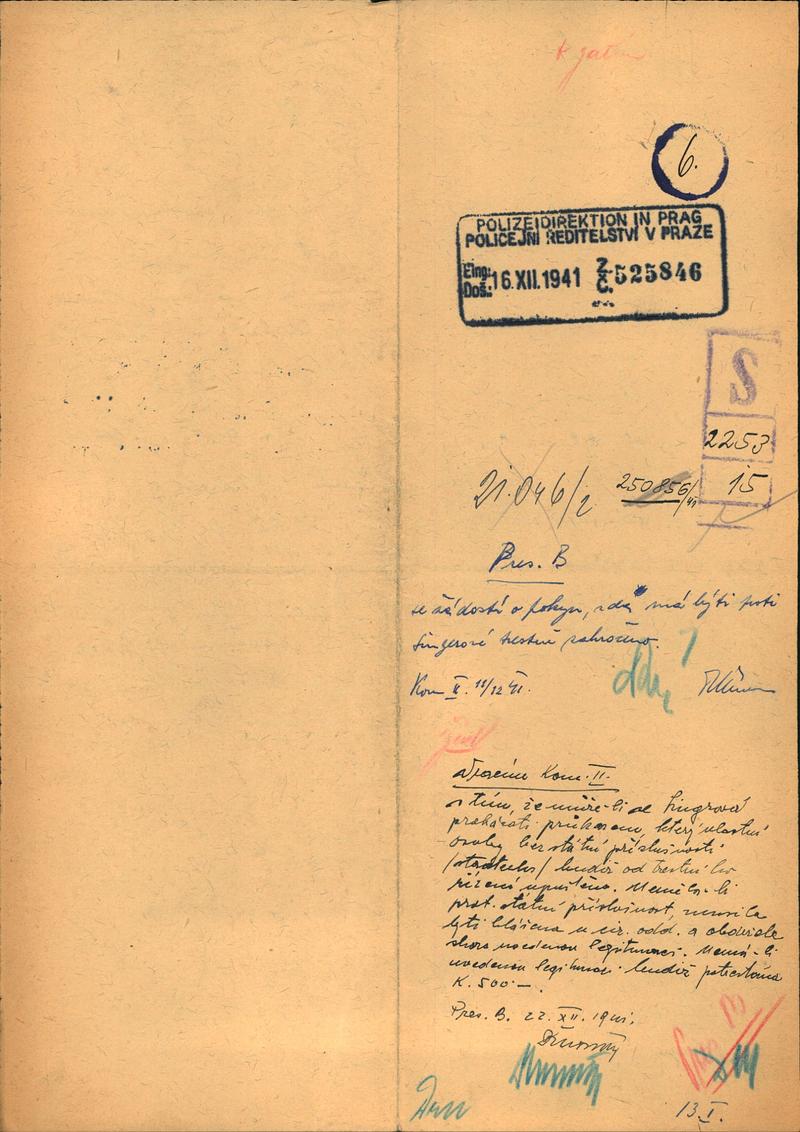 6.
POLIZEIDIREKTION IN PRAG
POLICEJNÍ ŘEDITELSTVÍ V PRAZE
Eing:
Doš.: 16.XII.1941 Z. Č. 525846
S
2253
21.046/2 250856/41 15
Pres. B
se žádostí o pokyn, zda má býti proti
Singerové trestně zakročeno.
Kom II. 11/12 41.
Žid
Vrací se Kom. II.
s tím, že může-li se Singrová
prokázati průkazem, který vlastní
osoby bez státní příslušnosti
/ budiž od trestního
řízení upuštěno. Neměla-li
prot. státní příslušnost, musila
býti hlášena u ciz. odd. a obdržela
shora uvedenou legitimaci. Nemá-li
uvedenou legitimaci budiž potrestána
K. 500.—.
Pres. B. 22. XII. 1941.
13.I.